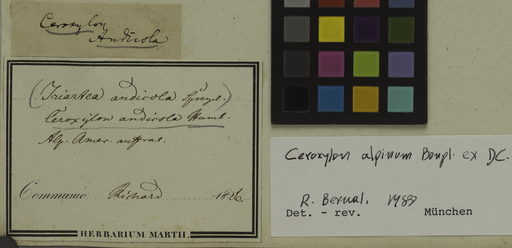 Ceroxylon
Andicola
(Iriartea andicola Spreng.)
Ceroxylon andicola Humb.
Alp. Amer. austral.
Communic. Richard 1826
HERBARIUM MARTII.
Ceroxylon alpinum Bonpl. ex DC.
R. Bernal, 1989
Det. - rev. München